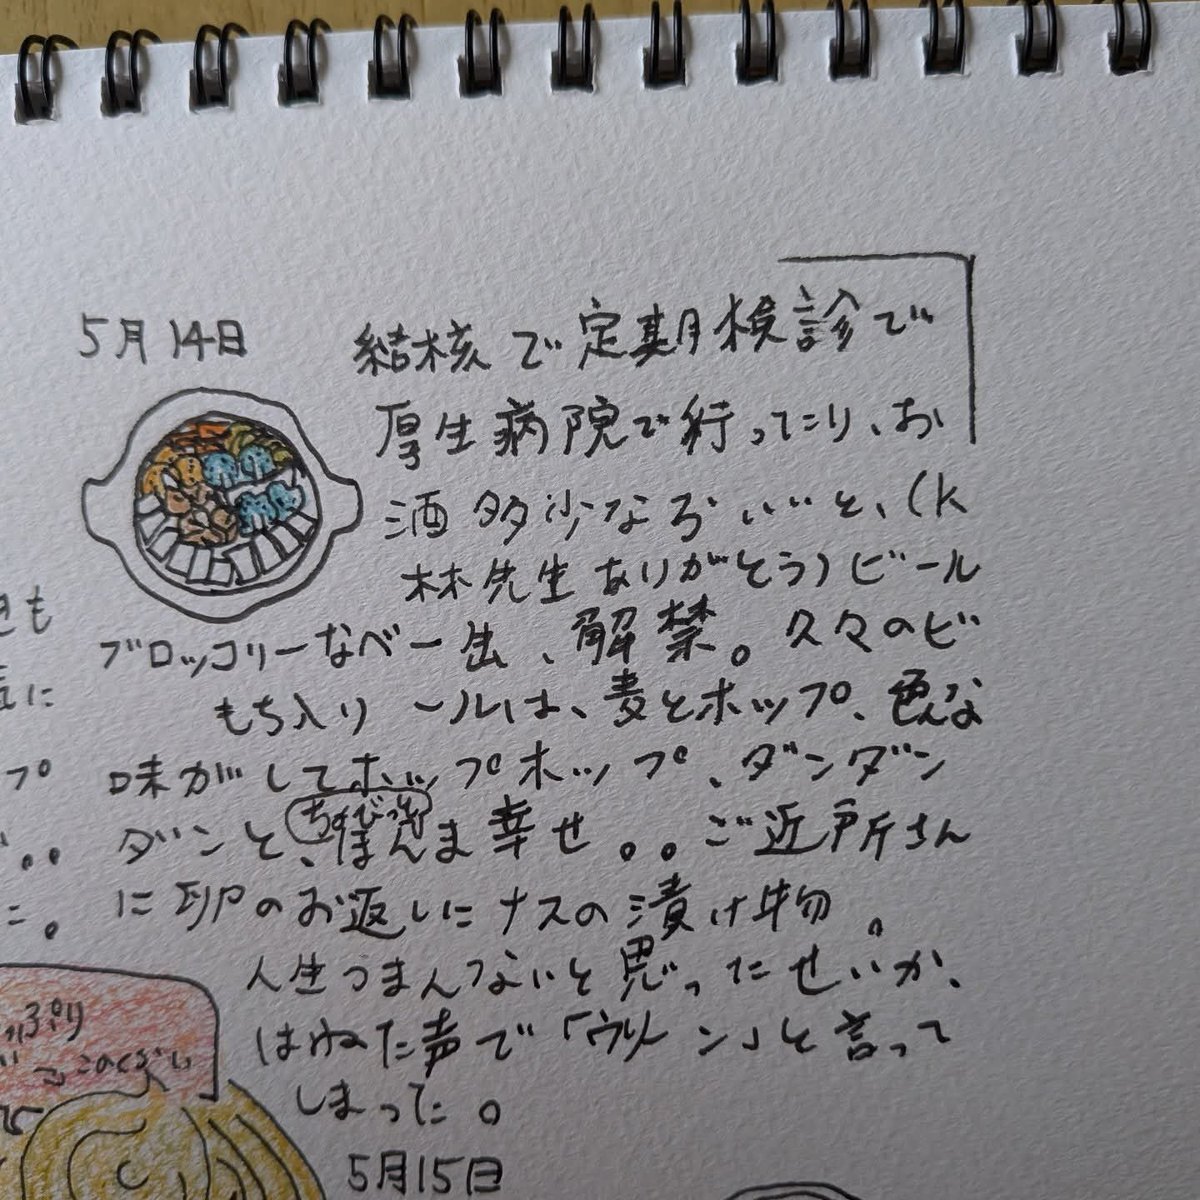 5月14日
結核で定期検診で
厚生病院で行ったり、お
酒多少ならいいと、(K
林先生ありがとう)ビール
ブロッコリーなべ
もち入り
一缶、解禁。久々のビ
ールは、麦とホップ、色んな
味がしてホップホップ、ダンダン
ダンと、ほんま幸せ。。ご近所さん
に卵のお返しにナスの漬け物。
人生つまんないと思ったせいか、
はねた声で「ウリーン」と言って
しまった。
5月15日
きも
気に
プ
。。
こ。
っぷり
このくらい